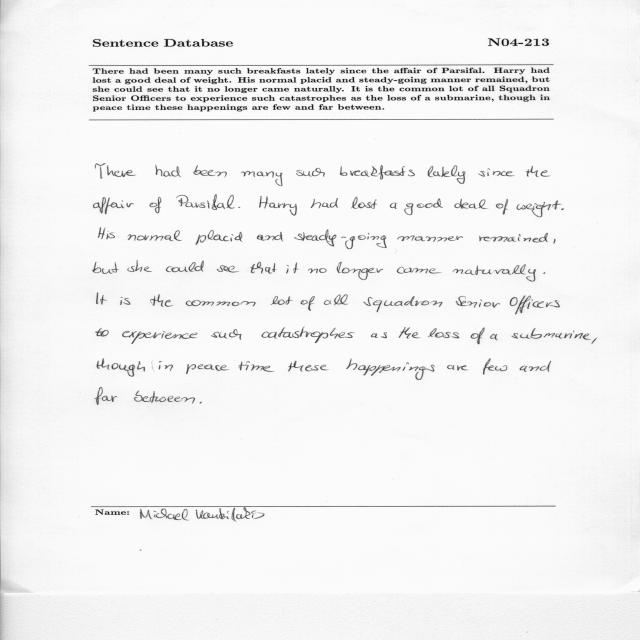 Sentence Database N04-213
There had been many such breakfasts lately since the affair of Parsifal. Harry had
lost a good deal of weight. His normal placid and steady-going manner remained, but
she could see that it no longer came naturally. It is the common lot of all Squadron
Senior Officers to experience such catastrophes as the loss of a submarine, though in
peace time these happenings are few and far between.
There had been many such breakfasts lately since the
affair of Parsifal. Harry had lost a good deal of weight.
His normal placid and steady-going manner remained,
but she could see that it no longer came naturally.
It is the common lot of all Squadron Senior Officers
to experience such catastrophes as the loss of a submarine,
though in peace time these happenings are few and
far between.
Name: Michael